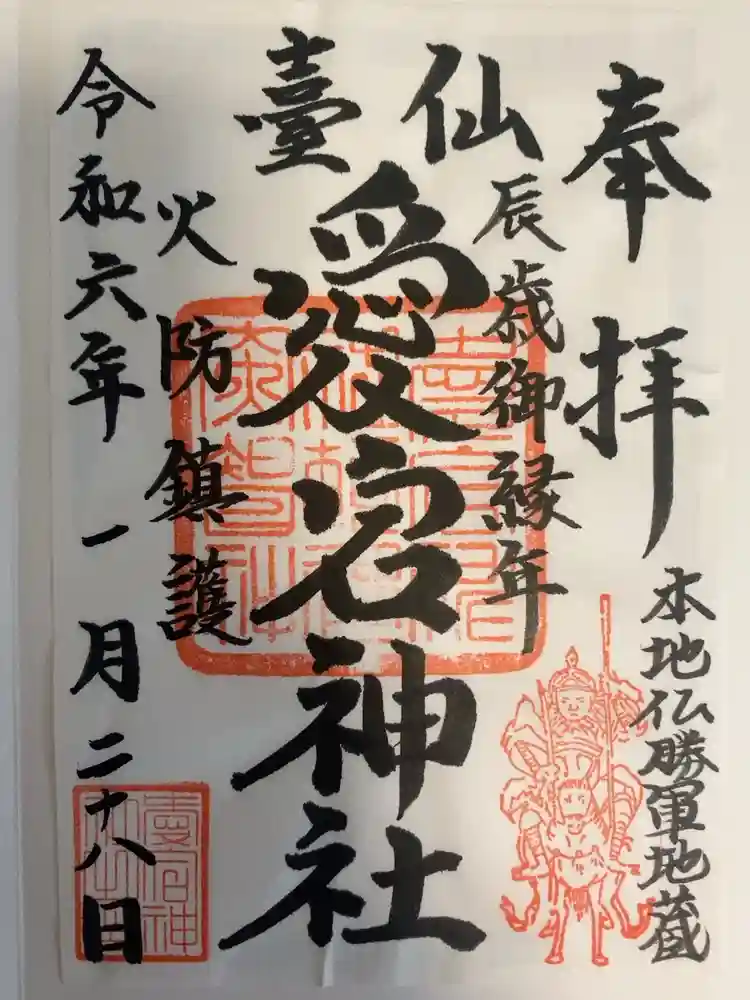 奉拝
本地仏勝軍地蔵
仙臺
辰歳御縁年
愛宕神社
火防鎮護
令和六年一月二十八日
愛宕神